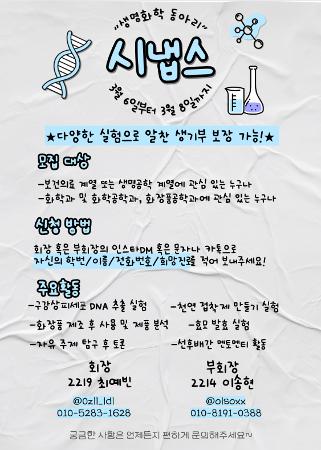 "생명화학 동아리"
시냅스
3월 6일부터 3월 8일까지
★다양한 실험으로 알찬 생기부 보장 가능!★
모집 대상
-보건의료 계열 또는 생명공학 계열에 관심 있는 누구나
-화학과 및 화학공학과, 화장품공학과에 관심 있는 누구나
신청 방법
회장 혹은 부회장의 인스타DM 혹은 문자나 카톡으로
자신의 학번/이름/전화번호/희망진로를 적어 보내주세요!
주요활동
-구강상피세포 DNA 추출 실험
-천연 접착제 만들기 실험
-화장품 제조 후 사용 및 제품 분석
-효모 발효 실험
-자유 주제 탐구 후 토론
-선후배간 멘토멘티 활동
회장
2219 최예빈
@0zll_ldl
010-5283-1628
부회장
2214 이송현
@olsoxx
010-8191-0388
궁금한 사항은 언제든지 편하게 문의해주세요~